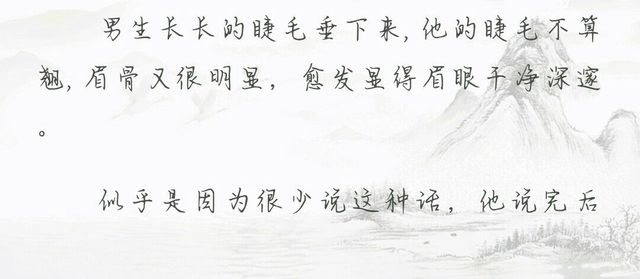 男生长长的睫毛垂下来,他的睫毛不算
翘,眉骨又很明显，愈发显得眉眼干净深邃
。
似乎是因为很少说这种话，他说完后